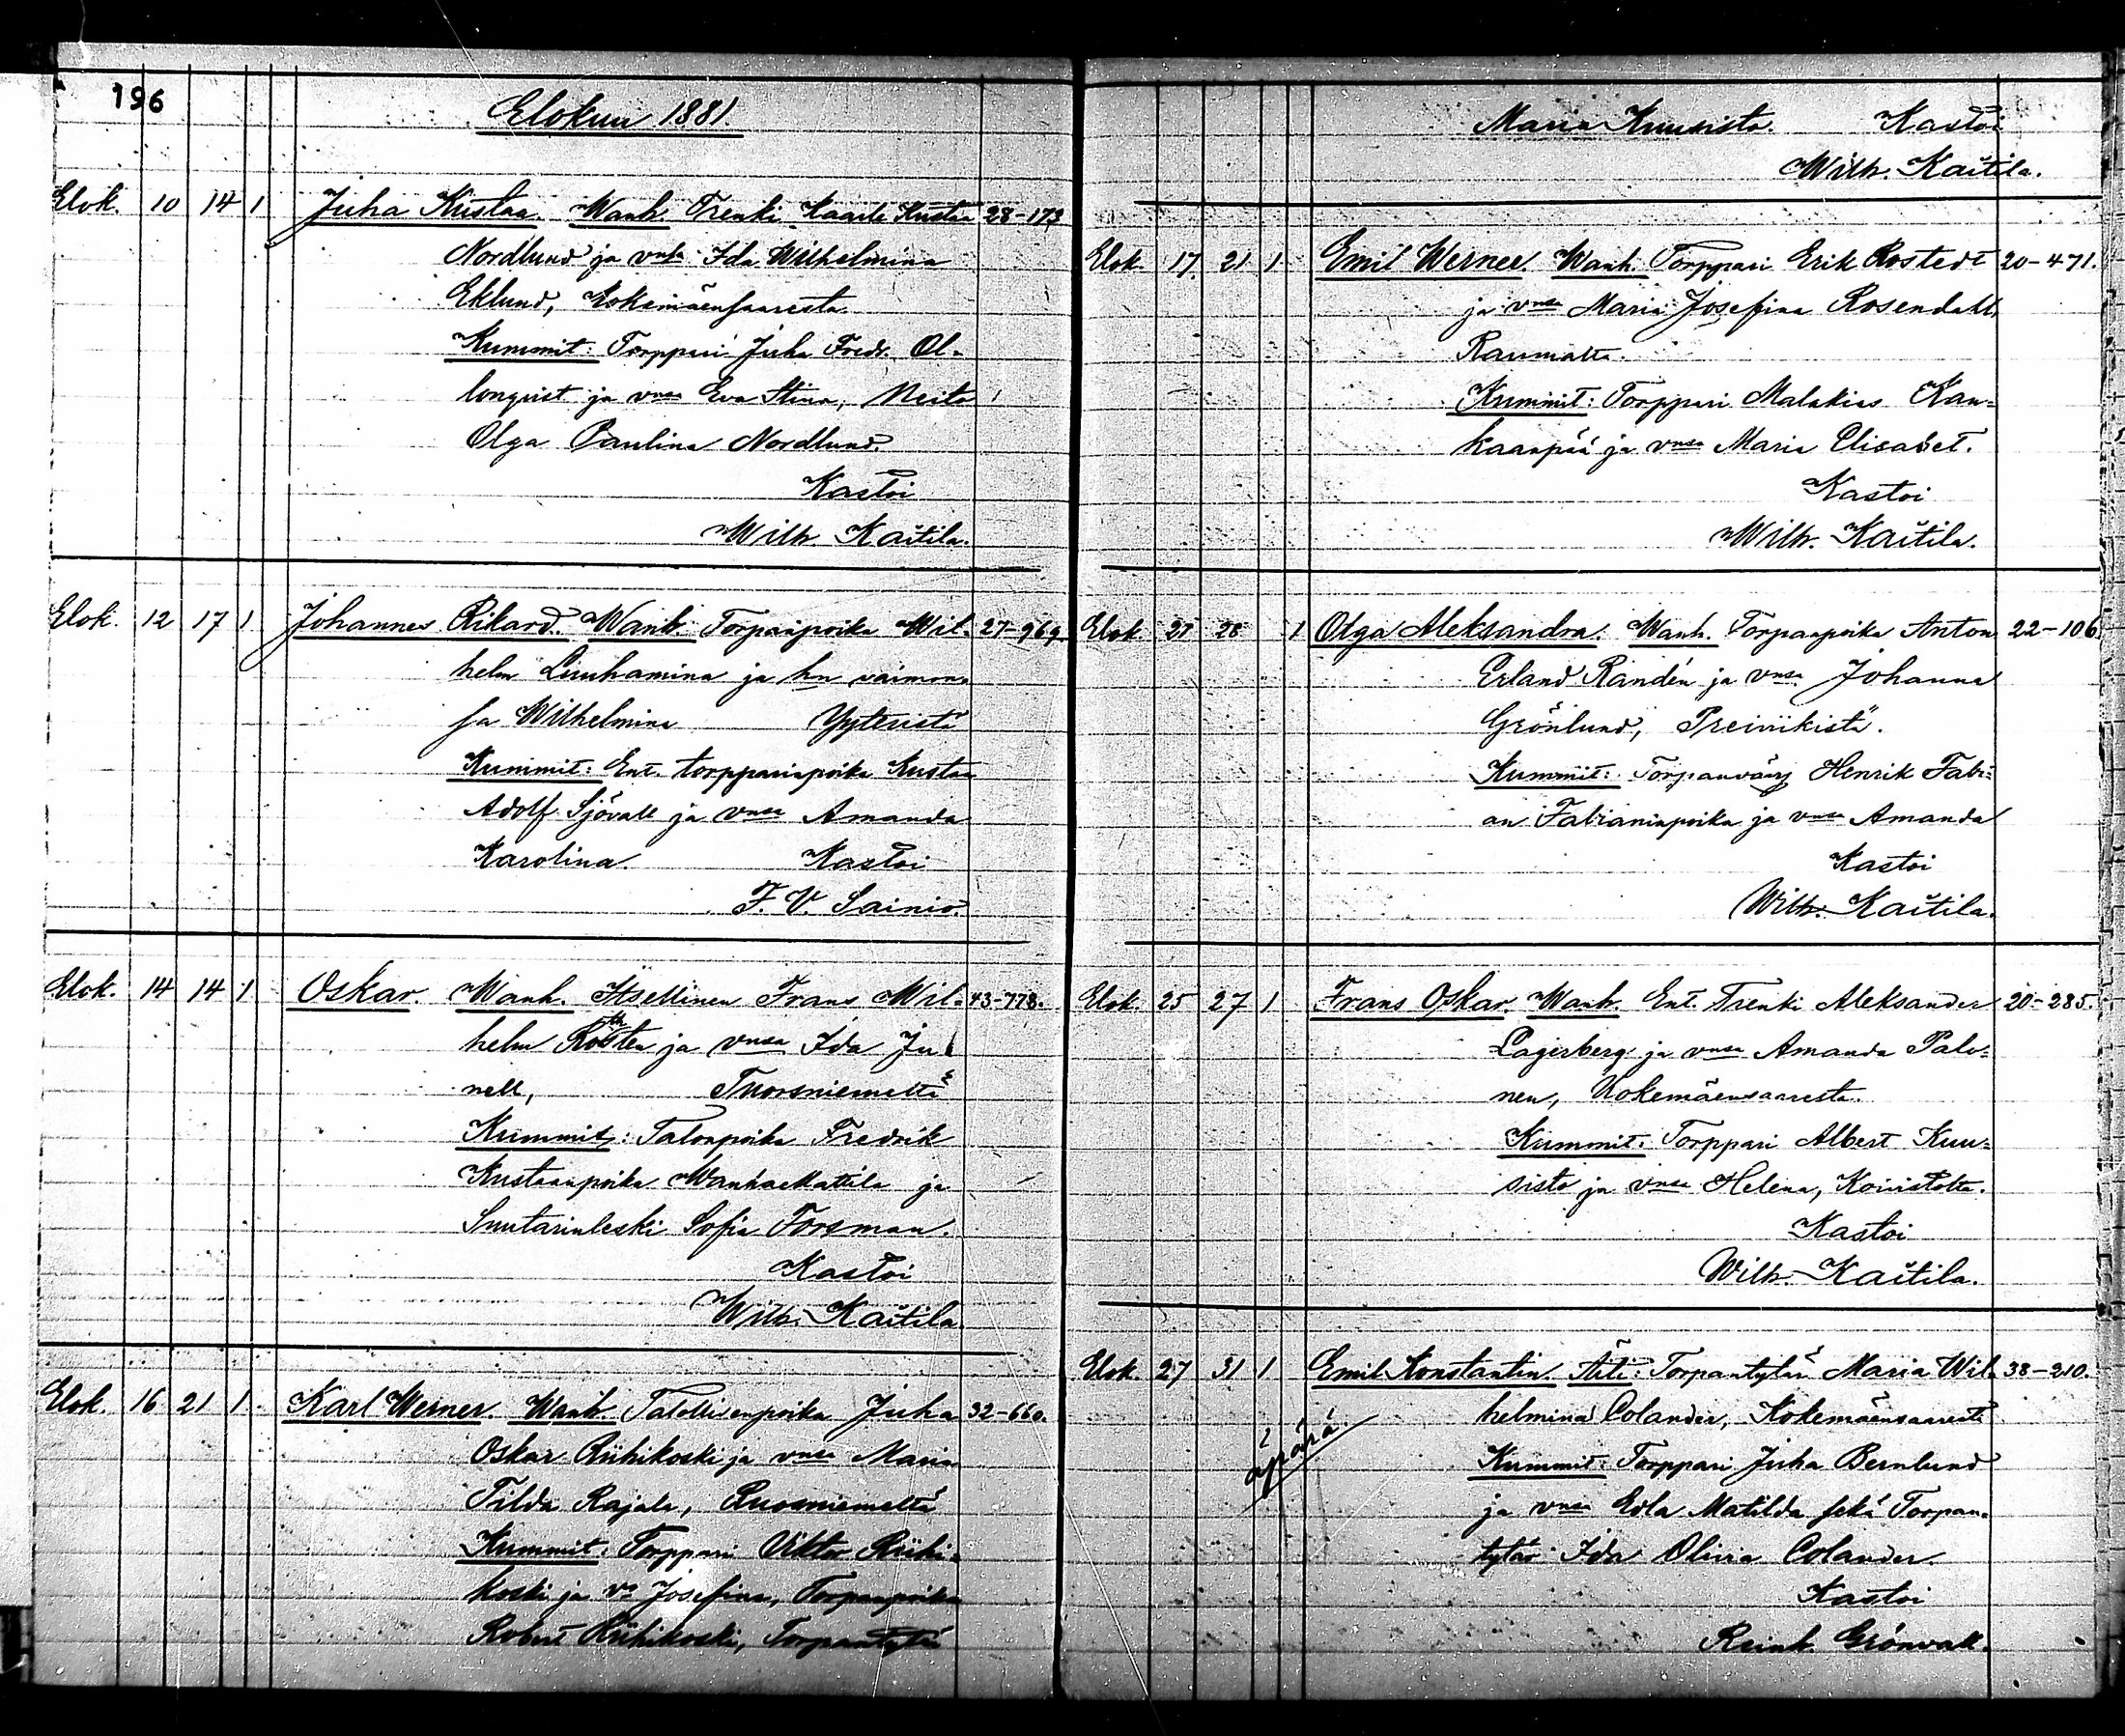 196
Elokuu 1881.
Elok. 10 14 1 Juha Kustaa. Wanh. Trenki Kaarle Kustaa 28-173
Nordlund ja vnsa Ida Wilhelmina
Eklund, Kokemäensaaresta.
Kummit: Torppari Juha Fredr. Ol-
lonqvist ja vnsa Eva Stina, Neito
Olga Paulina Nordlund.
Kastoi
Wilh. Kaitila.
Elok. 12 17 1 Johannes Rikard. Wanh. Torpanpoika Wil- 27-969
helm Luuhamina ja hn vaimon-
sa Wilhelmina Yyteristä
Kummit: Ent. torpparinpoika Kustaa
Adolf Sjövall ja vnsa Amanda
Karolina. Kastoi
F. V. Sainio.
Elok. 14 14 1 Oskar. Wanh. Itsellinen Frans Wil- 43-778.
helm ja vnsa Ida Ju-
nell,
Kummit: Talonpoika Fredrik
Kustaanpoika Wanhamattila ja
Suutarinleski Sofia Forsman.
Kastoi
Wilh. Kaitila.
Elok. 16 21 1 Karl Werner. Wanh. Talollisenpoika Juha 32-660.
Oskar Riihikoski ja vnsa Maria
Tilda Rajala, Ruosniemeltä
Kummit: Torppari Viktor Riihi-
koski ja va Josefina, Torpanpoika
Robert Riihikoski, Torpantytär
Maria Kuusisto. Kastoi
Wilh. Kaitila.
Elok. 17 21 1 Emil Werner. Wanh. Torppari Erik Rostedt 20-471.
ja vnsa Maria Josefina Rosendahl,
Raumalta.
Kummit: Torppari Malakias Kan-
kaanpää ja vnsa Maria Elisabet.
Kastoi
Wilh. Kaitila.
Elok. 21 28 1 Olga Aleksandra. Wanh. Torpanpoika Anton 22-106.
Erland Randén ja vnsa Johanna
Grönlund, Preiviikistä.
Kummit: Torpanvävy Henrik Fabi-
an Fabianinpoika ja vnsa Amanda
Kastoi
Wilh. Kaitila.
Elok. 25 27 1 Frans Oskar. Wanh. Ent. Trenki Aleksander 20-285.
Lagerberg ja vnsa Amanda Palo-
nen, Kokemäensaaresta.
Kummit: Torppari Albert Kuu-
sisto ja vnsa Helena, Koivistolta.
Kastoi
Wilh. Kaitila.
Elok. 27 31 1 Emil Konstantin. Äiti: Torpantytär Maria Wil- 38-210.
helmina Colander, Kokemäensaaresta
äpärä
Kummit: Torppari Juha Bernlund
ja vnsa Edla Matilda sekä Torpan-
tytär Ida Olivia Colander.
Kastoi
Reinh. Grönvall.